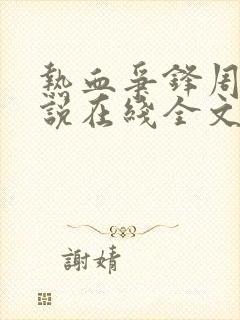 熱血爭鋒周
說在綫全文
謝婧